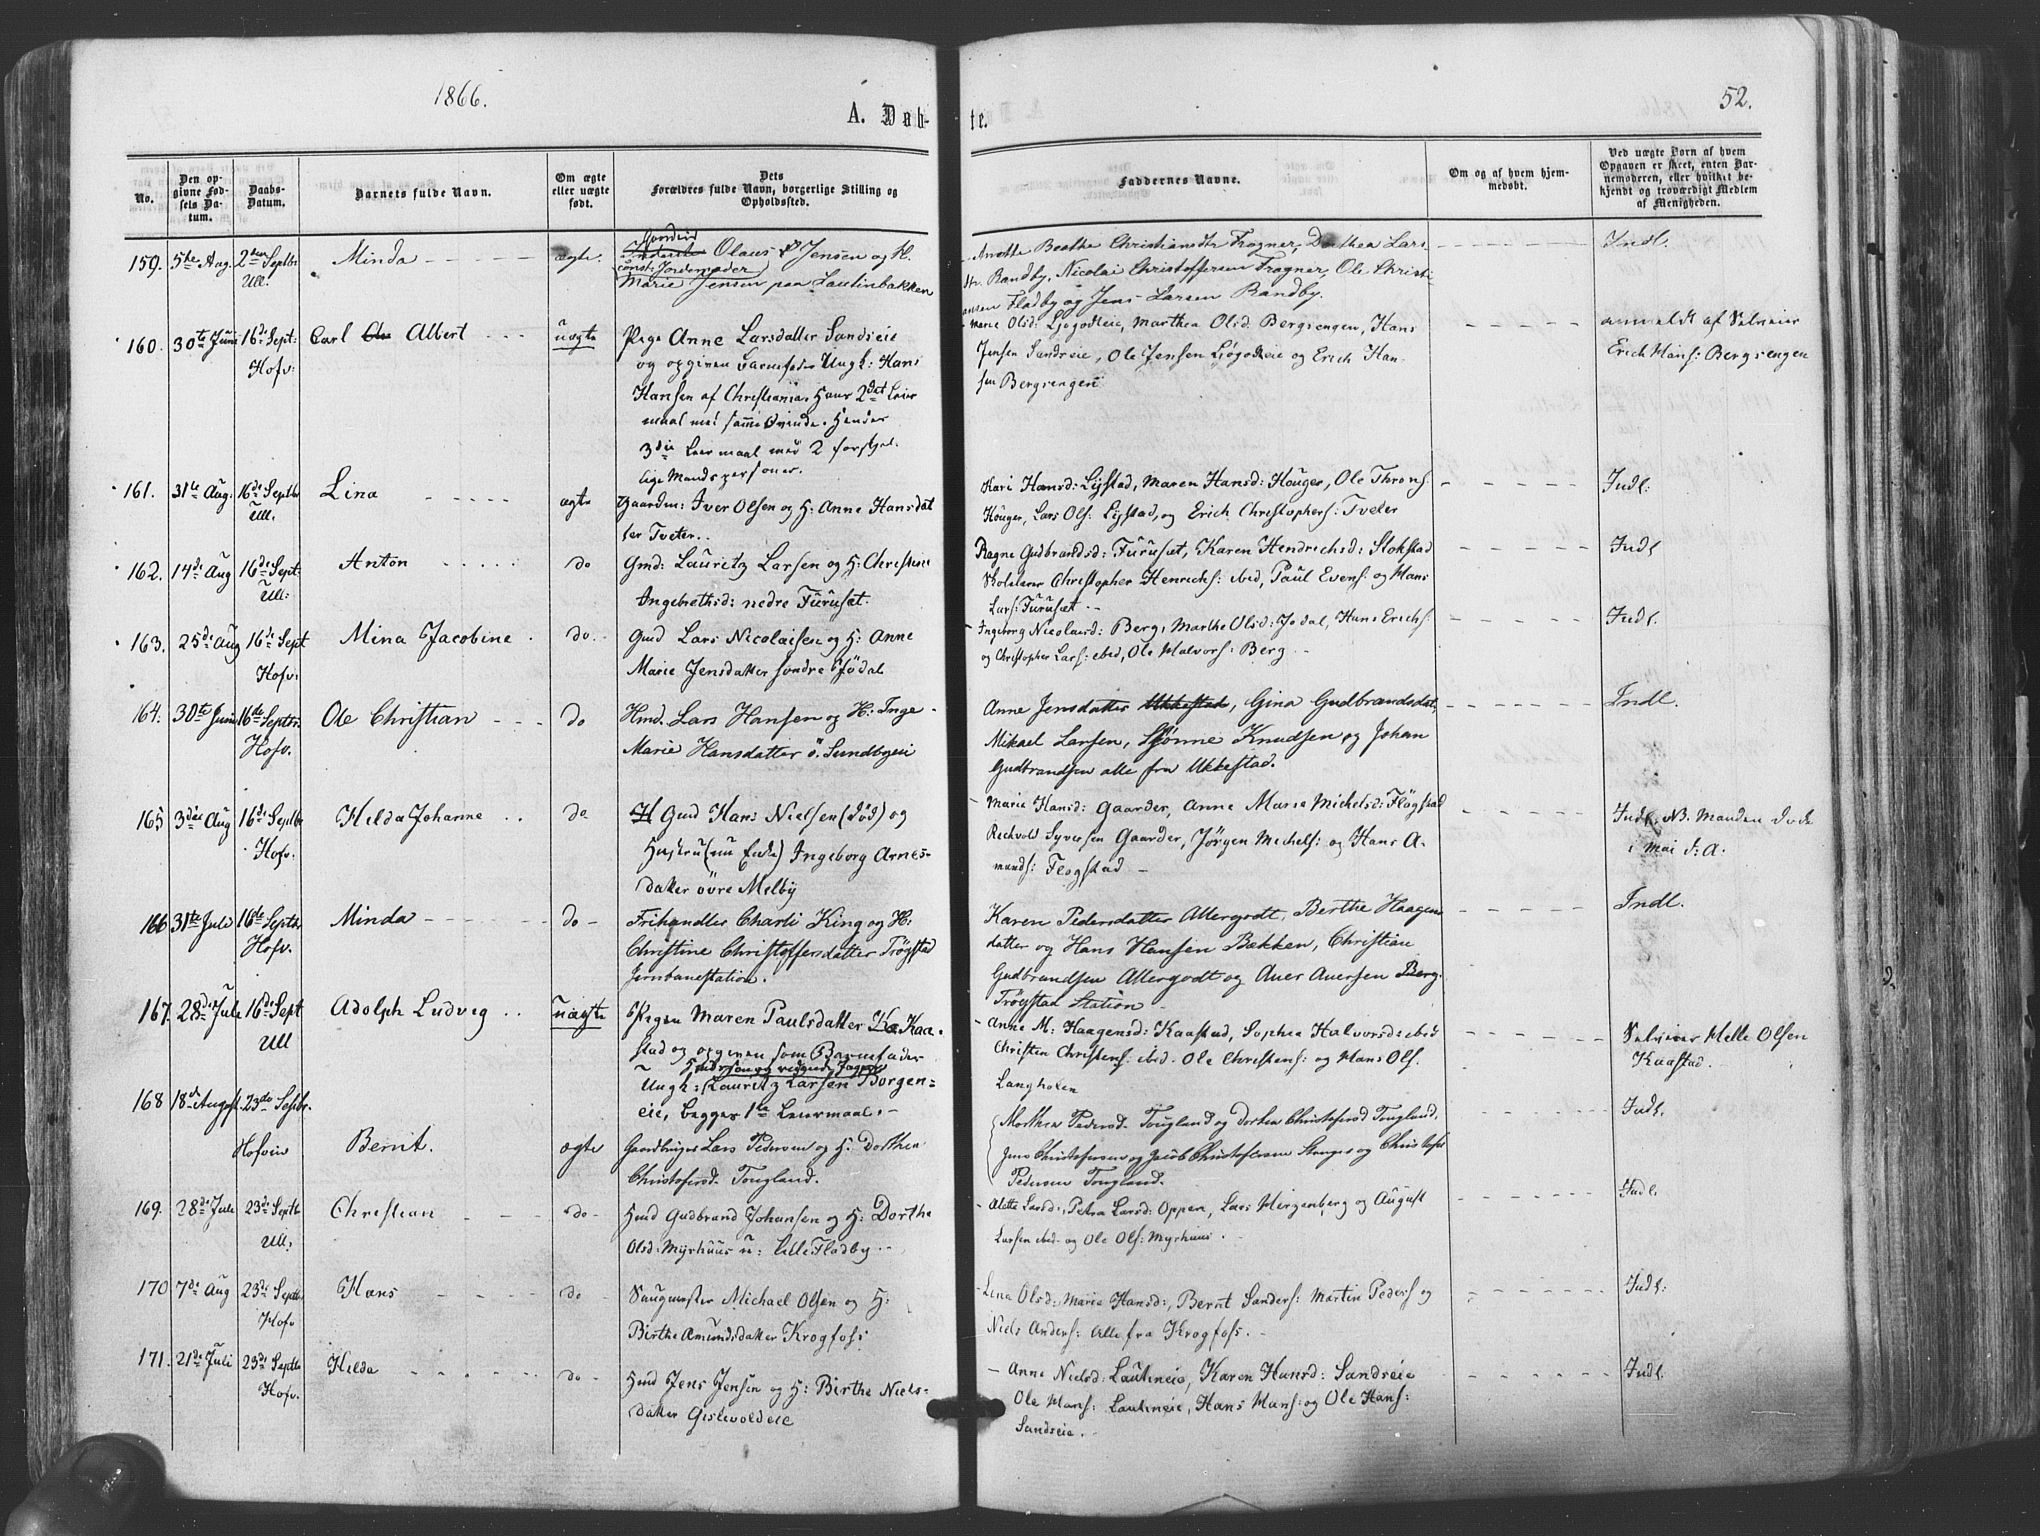 1866.
52.
A. Døb-
te.
No.
Den op-
givne Fød-
sels Da-
tum.
Daabs-
Datum.
Barnets fulde Navn.
Om ægte
eller uægte
født.
Dets
Forældres fulde Navn, borgerlige Stilling og
Opholdssted.
Faddernes Navne.
Om og af hvem hjem-
medøbt.
Ved uægte Børn af hvem
Opgaven er skeet, enten Bar-
nemoderen, eller hvilket be-
kjendt og troværdigt Medlem
af Menigheden.
159. 5te Aug. 2den Septbr Ull. Minda ægte.
Olaus Jensen og H.
const: Jordemoder
Marie Jensen paa Lautinbakken
Anette Beathe Christiansdtr Frogner, Dorthea Lars
dtr. Randby, Nicolai Christoffersen Frogner, Ole Christi
ansen Fladby og Jens Larsen Randby.
Indl.
160. 30te Juni 16de Sept: Hofv: Carl Albert uægte
Pige Anne Larsdatter Sandseie
og opgiven Barnefader Ungk: Hans
Hansen af Christiania. Hans 2det Leier
maal med samme Qvinde. Hendes
3die Leiermaal med 2 forskjel-
lige Mandspersoner.
Marie Olsd: Ljøgodteie, Marthea Olsd. Bergsengen, Hans
Jensen Sandseie, Ole Jensen Ljøgodteie og Erich Han-
sen Bergsengen
anmeldt af Selveier
Erich Hans: Bergsengen
161. 31te Aug: 16de Septbr Ull. Lina ægte
Gaardm: Iver Olsen og H: Anne Hansdat
ter Tveter.
Kari Hansd: Lystad, Maren Hansd: Houger, Ole Throns:
Houger, Lars Ols: Lystad, og Erich Christophers: Tveter
Indl:
162. 14de Aug 16de Sept: Ull: Anton do
Gmd: Lauritz Larsen og H: Christine
Ingebrethsd: nedre Furuset.
Ragne Gudbrandsd: Furuset, Karen Hendrichsd: Slokstad
Skolelærer Christopher Henrichs: ibid, Paul Evens: og Hans
Lars: Furuset.
Indl
163. 25de Aug 16de Sept Hofv: Mina Jacobine do.
Gmd Lars Nicolaisen og H: Anne
Marie Jensdatter søndre Jødal
Ingeborg Nicolaisd: Berg, Marthe Olsd: Jødal, Hans Erichs:
og Christopher Lars: ibid, Ole Halvors: Berg
Indl.
164. 30te Juni 16de Septbr. Hofv. Ole Christian do
Hmd. Lars Hansen og H: Inge
Marie Hansdatter ö. Sundbyeie
Anne Jensdatter Ukkestad, Gina Gudbrandsdat,
Mikael Larsen, Skönne Knudsen og Johan
Gudbrandsen alle fra Ukkestad.
Indl.
165 3die Aug 16de Septbr Hofv: Hilda Johanne do
H Gmd Hans Nielsen (död) og
Hustru (nu Enke) Ingeborg Arnes-
datter övre Melby
Marie Hansd: Gaarder, Anne Marie Michelsd: Flögstad
Syversen Gaarder, Jörgen Michels: og Hans A-
munds: Flogstad
Indl: NB. Manden döde
i Mai d: A.
166 31te Juli 16de Septbr Hofv. Minda do
Frihandler Charli King og H.
Christine Christoffersdatter Trögstad
Jernbanestation.
Karen Pedersdatter Allergodt, Berthe Haagens
datter og Hans Hansen Bækken, Christian
Gudbrandsen Allergodt og Auer Auersen Berg.
Trögstad Station
Indl.
167. 28de Juli 16de Sept Ull Adolph Ludvig uægte
Pigen Maren Paulsdatter Kaa-
stad og opgiven som Barnefader
Ungk: Lauritz Larsen Borgen=
eie, begges 1te Leiermaal.
Anne M: Haagensd: Kaastad, Sophie Halvorsd: ibid
Christen Christens: ibid. Ole Christens: og Hans Ols.
Langholen
Selveier Helle Olsen
Kaastad.
168 18de August. 23de Septbr. Hofvin Bernt. ægte
Gaardbruger Lars Pedersen og H: Dorthea
Christofersd. Tougland.
Marthea Pedersd. Tougland og Dorthea Christofersd Tougland.
Jens Christofersen og Jacob Christofersen og Christofer
Pedersen Tougland.
Indl.
169. 28de Juli 23de Septb Ull: Christian do
Hmd Gudbrand Johansen og H: Dorthe
Olsd: Myrhuus u: Lille Fladby
Alette Larsd:, Petra Larsd: Oppen, Lars Mirgenberg og August
Larsen ibid og Ole Ols: Myrhuus.
Indl.
170 7de Aug 23de Septbr Hofv Hans do
Saugmester Michael Olsen og H:
Birthe Amundsdatter Krogfoss
Lina Olsd:, Marie Hansd:, Bernt Sanders: Martin Peders og
Niels Anders: Alle fra Krogfoss.
Indl:
171. 21de Juli 23de Septbr Hofv. Hilda do
Hmd Jens Jensen og H: Birthe Niels-
datter Gislevoldeie
Anne Nielsd: Lautineie, Karen Hansd: Sandseie
Ole Hans: Lautineie, Hans Hans: og Ole Hans:
Sandseie.
Indl.